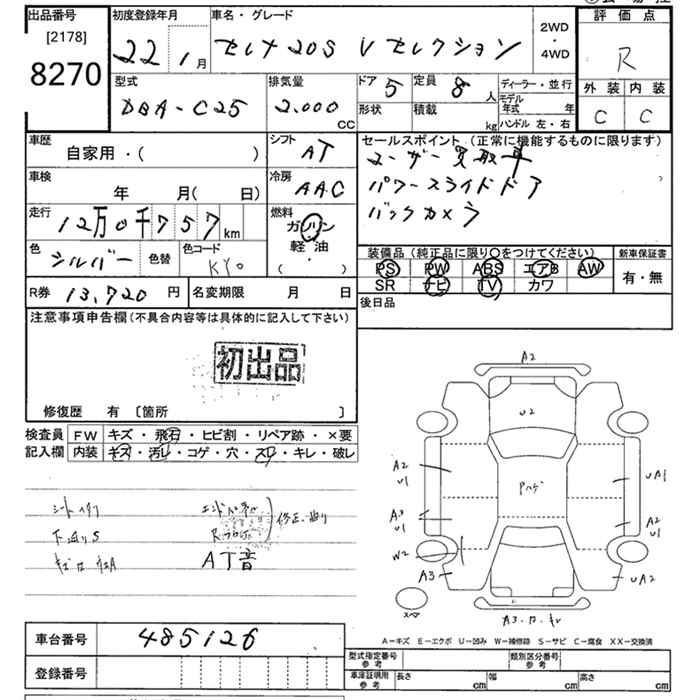 出品番号 初度登録年月 車名・グレード 評価点
[2178]
8270
22 1月 セレナ20S Vセレクション 2WD・4WD R
型式 排気量 ドア 5 定員 8人 ディーラー・並行 外装 内装
DBA-C25 2.000 CC 形状 積載 kg モデル年式 年 C C
ハンドル 左・右
車歴 シフト セールスポイント (正常に機能するものに限ります)
自家用・( ) AT ユーザー買取車
車検 冷房 パワースライドドア
年 月( 日) AAC バックカメラ
走行 燃料
12万0千757km ガソリン
軽油
( ・ )
色 シルバー 色替 色コード KY0
装備品 (純正品に限り〇をつけてください) 新車保証書
PS PW ABS エアB AW 有・無
SR ナビ TV カワ
R券 13,720円 名変期限 月 日 後日品
注意事項申告欄(不具合内容等は具体的に記入して下さい)
初出品
修復歴 有 〔箇所 〕
検査員 FW キズ・飛石・ヒビ割・リペア跡・×要
記入欄 内装 キズ・汚レ・コゲ・穴・スレ・キレ・破レ
シートヘタリ
修正・曲り
下廻りS
AT音
A2
U2
A2
U1
Pハゲ
UA1
A3
U1
A2
U1
W2
A3
UA2
スペア
A3・カ・キレ
車台番号 485126
登録番号
A－キズ E－エクボ U－凹み W－補修跡 S－サビ C－腐食 XX－交換済
型式指定番号 参考 類別区分番号 参考
車庫証明用 参考 長さ cm 幅 cm 高さ cm